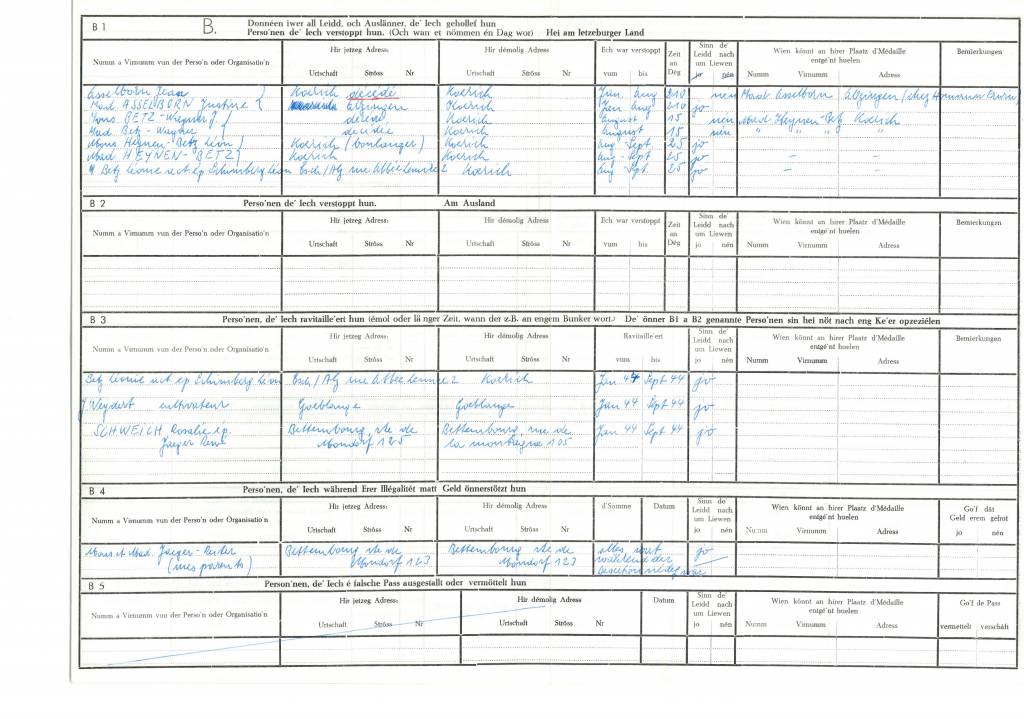 B 1
B.
Donnéen iwer all Leidd, och Auslänner, de' Iech gehollef hun
Perso'nen de' Iech verstoppt hun. (Och wan et nömmen én Dag wor) Hei am letzeburger Land
Numm a Virnumm vun der Perso'n oder Organisatio'n
Hir jetzeg Adress:
Urtschaft Ströss Nr
Hir démolig Adress:
Urtschaft Ströss Nr
Ech war verstoppt
vum bis
Zeit an Dég
Sinn de' Leidd nach um Liewen
jo nén
Wien könnt an hirer Plaatz d'Médaille entgé'nt huelen
Numm Virnumm Adress
Bemierkungen
Asselborn Jean Koerich decedé Koerich Jun. Aug 210 nen Mad Asselborn Elzingen
Mad. ASSELBORN Justine Elzingen Koerich Jan Aug 210 jo
Mons BETZ-Wagner Koerich August 15 nén Mad Heynen-Betz Koerich
Mad Betz-Wagner Koerich August 15 nén " " "
Mons Heynen-Betz Léon Koerich (boulanger) Koerich Aug Sept 25 jo
Mad HEYNEN-BETZ Koerich Koerich Aug Sept 25 jo – –
Betz Léonie ep. Schumberg Léon Esch/Alz rue Koerich Aug Sept. 25 jo – –
B 2
Perso'nen de' Iech verstoppt hun. Am Ausland
Numm a Virnumm vun der Perso'n oder Organisatio'n
Hir jetzeg Adress:
Urtschaft Ströss Nr
Hir démolig Adress:
Urtschaft Ströss Nr
Ech war verstoppt
vum bis
Zeit an Dég
Sinn de' Leidd nach um Liewen
jo nén
Wien könnt an hirer Plaatz d'Médaille entgé'nt huelen
Numm Virnumm Adress
Bemierkungen
B 3
Perso'nen, de' Iech ravitaille'ert hun (émol oder länger Zeit, wann der z.B. an engem Bunker wort.) De' önner B1 a B2 genannte Perso'nen sin hei nöt nach eng Ke'er opzeziélen
Numm a Virnumm vun der Perso'n oder Organisatio'n
Hir jetzeg Adress:
Urtschaft Ströss Nr
Hir démolig Adress:
Urtschaft Ströss Nr
Ravitaille'ert
vum bis
Sinn de' Leidd nach um Liewen
jo nén
Wien könnt an hirer Plaatz d'Médaille entgé'nt huelen
Numm Virnumm Adress
Bemierkungen
Betz Léonie ep Schumberg Léon Esch/Alz rue 2 Koerich Jan 44 Sept 44 jo
Weydert cultivateur Goeblange Goeblange Jan 44 Sept 44 jo
SCHWEICH Rosalie ep. Bettembourg, rte de Bettembourg, rue de Jan 44 Sept 44 jo
Jaeger René Mondorf 125 la montagne 105
B 4
Perso'nen, de' Iech während Erer Illégalitét matt Geld önnerstötzt hun
Numm a Virnumm vun der Perso'n oder Organisatio'n
Hir jetzeg Adress:
Urtschaft Ströss Nr
Hir démolig Adress
Urtschaft Ströss Nr
d'Somme
Datum
Sinn de' Leidd nach um Liewen
jo nén
Wien könnt an hirer Plaatz d'Médaille entgé'nt huelen
Numm Virnumm Adress
Go'f dât Geld erem gefrot
jo nén
Mons et Mad. Jaeger-Reiter Bettembourg rte de Bettembourg rte de alles, wat jo
(mes parents) Mondorf 123 Mondorf 123
B 5
Person'nen, de' Iech é falsche Pass ausgestallt oder vermöttelt hun
Numm a Virnumm vun der Perso'n oder Organisatio'n
Hir jetzeg Adress:
Urtschaft Ströss Nr
Hir démolig Adress
Urtschaft Ströss Nr
Datum
Sinn de' Leidd nach um Liewen
jo nén
Wien könnt an hirer Plaatz d'Médaille entgé'nt huelen
Numm Virnumm Adress
Go'f de Pass
vermettelt verschâft